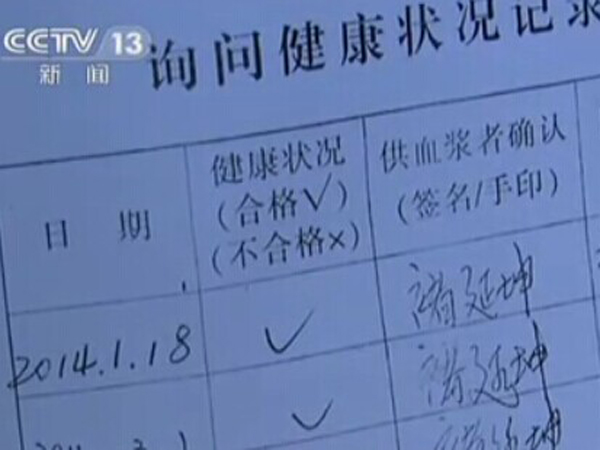 CCTV 13
新闻
询问健康状况记录
日期
健康状况
(合格√)
(不合格×)
供血浆者确认
(签名/手印)
2014.1.18 ✓ 褚延坤
✓ 褚延坤